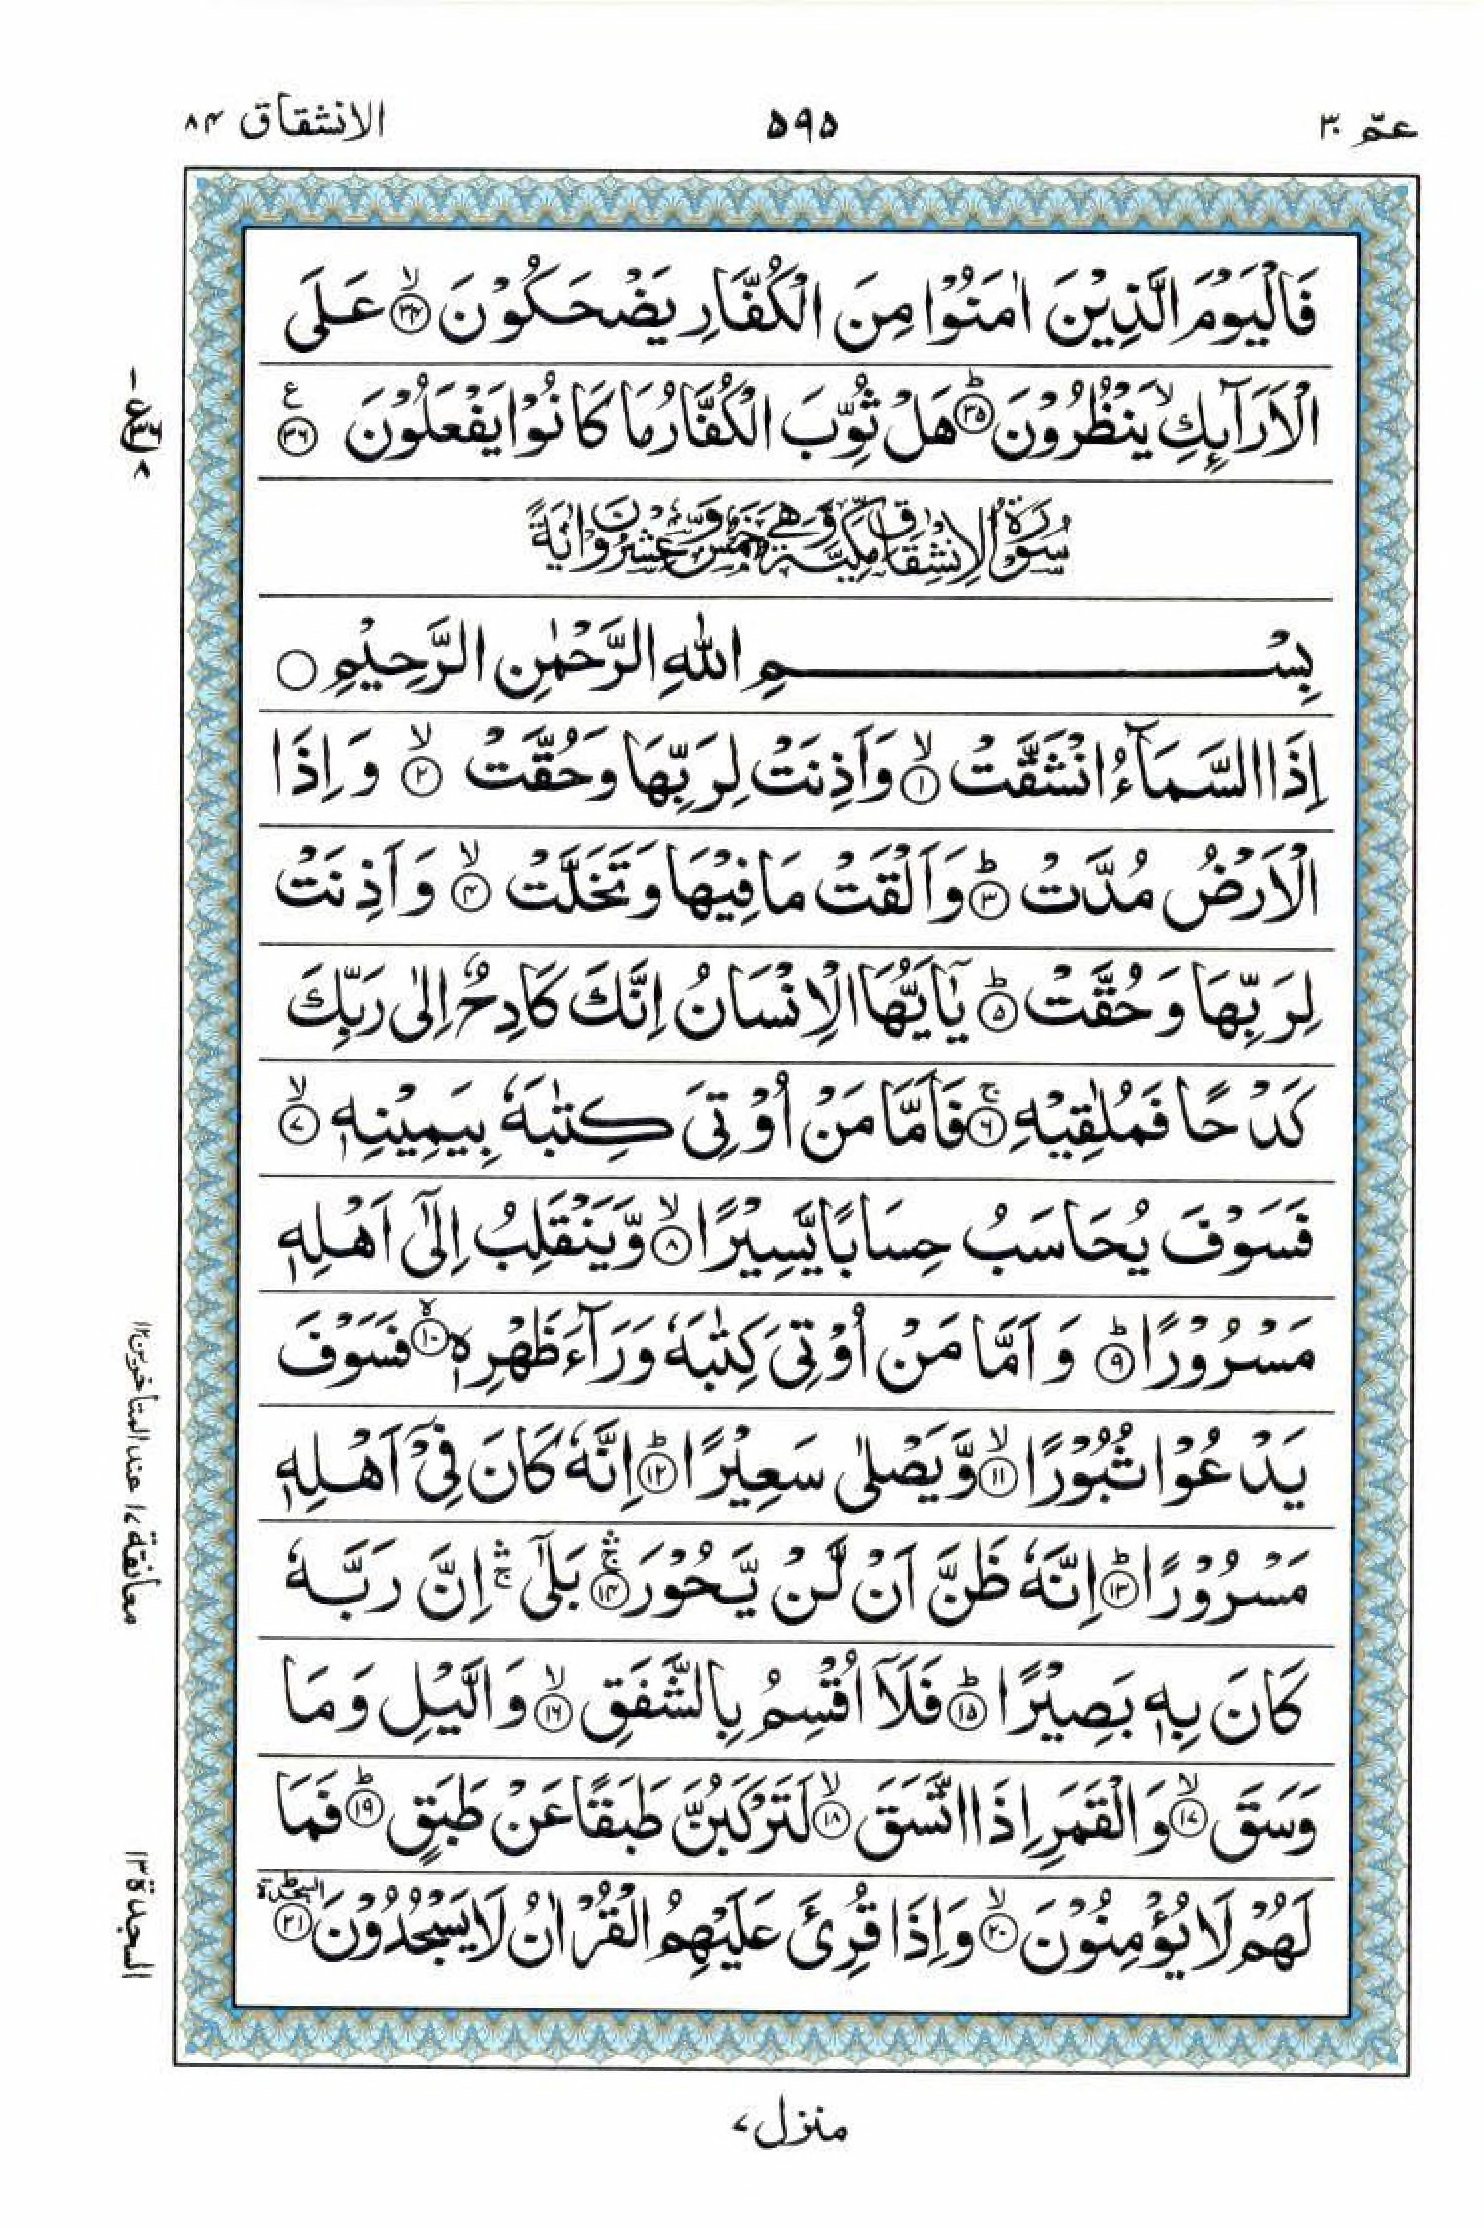 عمّ ۳۰
۵۹۵
الانشقاق ۸۴
فَالْيَوْمَ الَّذِيْنَ اٰمَنُوْا مِنَ الْكُفَّارِ يَضْحَكُوْنَ ۙ﴿۳۴﴾ عَلَى
الْاَرَآىِٕكِ ۙ يَنْظُرُوْنَ ؕ﴿۳۵﴾ هَلْ ثُوِّبَ الْكُفَّارُ مَا كَانُوْا يَفْعَلُوْنَ ﴿۳۶﴾ ع
سُوْرَةُ الْاِنْشِقَاقِ مَكِّيَّةٌ وَّهِيَ خَمْسٌ وَّعِشْرُوْنَ اٰيَةً
بِسْمِ اللّٰهِ الرَّحْمٰنِ الرَّحِيْمِ ○
اِذَا السَّمَآءُ انْشَقَّتْ ۙ﴿۱﴾ وَاَذِنَتْ لِرَبِّهَا وَحُقَّتْ ۙ﴿۲﴾ وَاِذَا
الْاَرْضُ مُدَّتْ ؕ﴿۳﴾ وَاَلْقَتْ مَا فِيْهَا وَتَخَلَّتْ ۙ﴿۴﴾ وَاَذِنَتْ
لِرَبِّهَا وَحُقَّتْ ؕ﴿۵﴾ يٰۤاَيُّهَا الْاِنْسَانُ اِنَّكَ كَادِحٌ اِلٰى رَبِّكَ
كَدْحًا فَمُلٰقِيْهِ ۚ﴿۶﴾ فَاَمَّا مَنْ اُوْتِيَ كِتٰبَهٗ بِيَمِيْنِهٖ ۙ﴿۷﴾
فَسَوْفَ يُحَاسَبُ حِسَابًا يَّسِيْرًا ۙ﴿۸﴾ وَّيَنْقَلِبُ اِلٰٓى اَهْلِهٖ
مَسْرُوْرًا ؕ﴿۹﴾ وَاَمَّا مَنْ اُوْتِيَ كِتٰبَهٗ وَرَآءَ ظَهْرِهٖ ۙ﴿۱۰﴾ فَسَوْفَ
يَدْعُوْا ثُبُوْرًا ۙ﴿۱۱﴾ وَّيَصْلٰى سَعِيْرًا ؕ﴿۱۲﴾ اِنَّهٗ كَانَ فِيْۤ اَهْلِهٖ
مَسْرُوْرًا ؕ﴿۱۳﴾ اِنَّهٗ ظَنَّ اَنْ لَّنْ يَّحُوْرَ ۛۚ﴿۱۴﴾ بَلٰٓى ۛۚ اِنَّ رَبَّهٗ
كَانَ بِهٖ بَصِيْرًا ؕ﴿۱۵﴾ فَلَآ اُقْسِمُ بِالشَّفَقِ ۙ﴿۱۶﴾ وَالَّيْلِ وَمَا
وَسَقَ ۙ﴿۱۷﴾ وَالْقَمَرِ اِذَا اتَّسَقَ ۙ﴿۱۸﴾ لَتَرْكَبُنَّ طَبَقًا عَنْ طَبَقٍ ؕ﴿۱۹﴾ فَمَا
لَهُمْ لَا يُؤْمِنُوْنَ ۙ﴿۲۰﴾ وَاِذَا قُرِئَ عَلَيْهِمُ الْقُرْاٰنُ لَا يَسْجُدُوْنَ ؕ﴿۲۱﴾ السجدة
ع ۳۶ ۸
معانقة ۱۷ عند المتاخرين ۱۲
السجدة ۱۳
منزل ۷